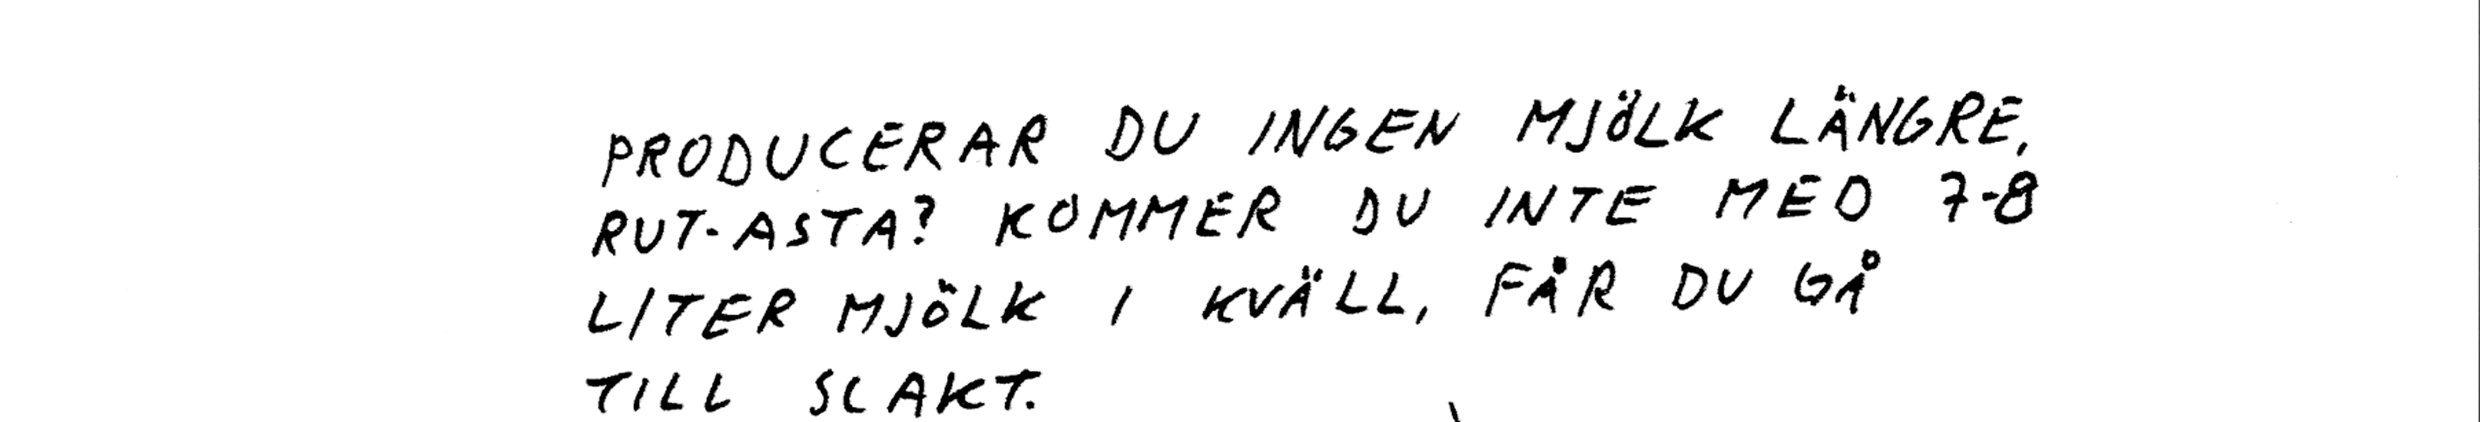 PRODUCERAR DU INGEN MJÖLK LÄNGRE,
RUT-ASTA? KOMMER DU INTE MED 7-8
LITER MJÖLK I KVÄLL, FÅR DU GÅ
TILL SLAKT.